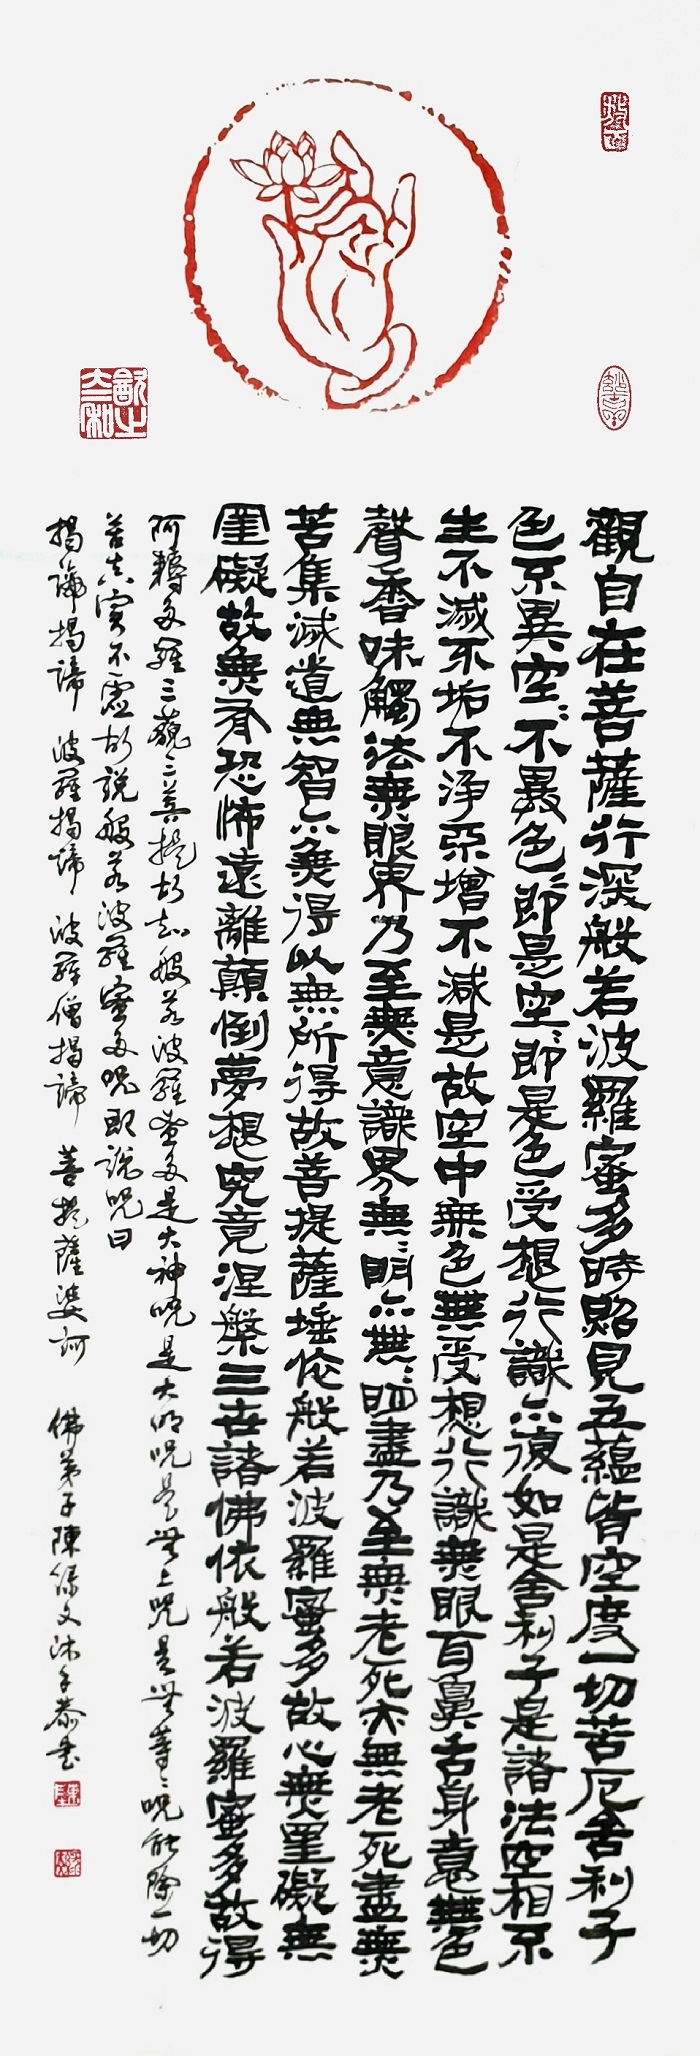 觀自在菩薩行深般若波羅蜜多時照見五蘊皆空度一切苦厄舍利子
色不異空〻不異色〻即是空〻即是色受想行識亦復如是舍利子是諸法空相不
生不滅不垢不淨不增不減是故空中無色無受想行識無眼耳鼻舌身意無色
聲香味觸法無眼界乃至無意識界無〻明亦無〻明盡乃至無老死亦無老死盡無
苦集滅道無智亦無得以無所得故菩提薩埵依般若波羅蜜多故心無罣礙無
罣礙故無有恐怖遠離顛倒夢想究竟涅槃三世諸佛依般若波羅蜜多故得
阿耨多羅三藐三菩提故知般若波羅蜜多是大神咒是大明咒是無上咒是無等〻咒能除一切
苦真實不虛故說般若波羅蜜多咒即說咒曰
揭諦揭諦 波羅揭諦 波羅僧揭諦 菩提薩婆訶 佛弟子陳保文沐手恭書